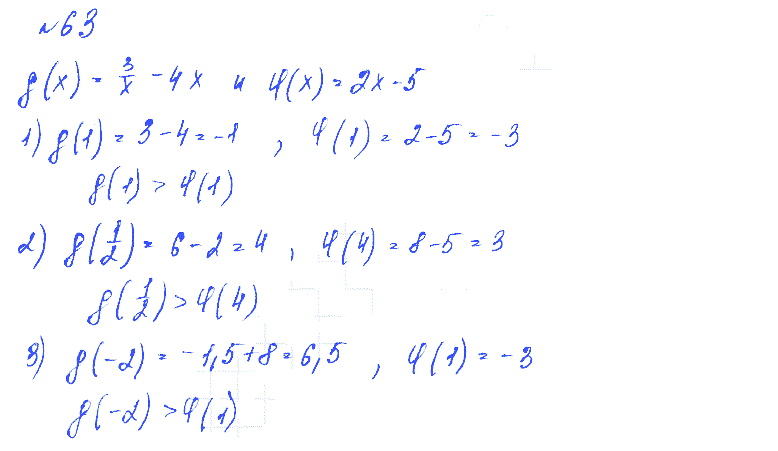 №63
g(x) = 3/x - 4x и φ(x) = 2x - 5
1) g(1) = 3 - 4 = -1 , φ(1) = 2 - 5 = -3
g(1) > φ(1)
2) g(1/2) = 6 - 2 = 4 , φ(4) = 8 - 5 = 3
g(1/2) > φ(4)
3) g(-2) = -1,5 + 8 = 6,5 , φ(1) = -3
g(-2) > φ(1)